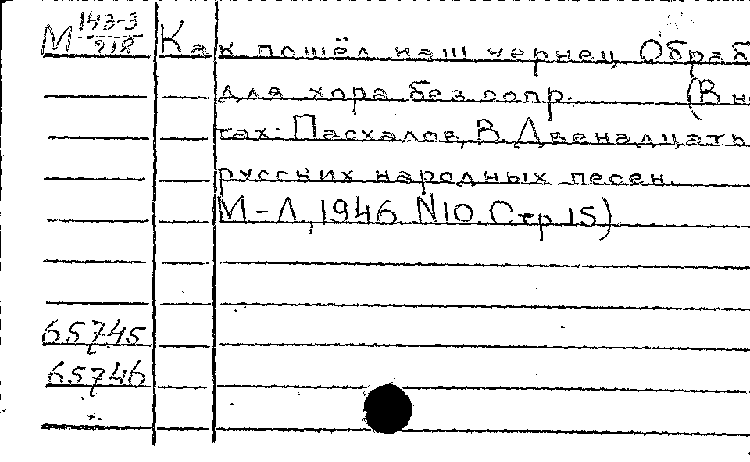 М 143-3/218 Как пошёл наш чернец Обраб
для хора без сопр. (В но
тах: Пасхалов, В. Двенадцать
русских народных песен.
М-Л, 1946 N10. Стр. 15)
65745
65746